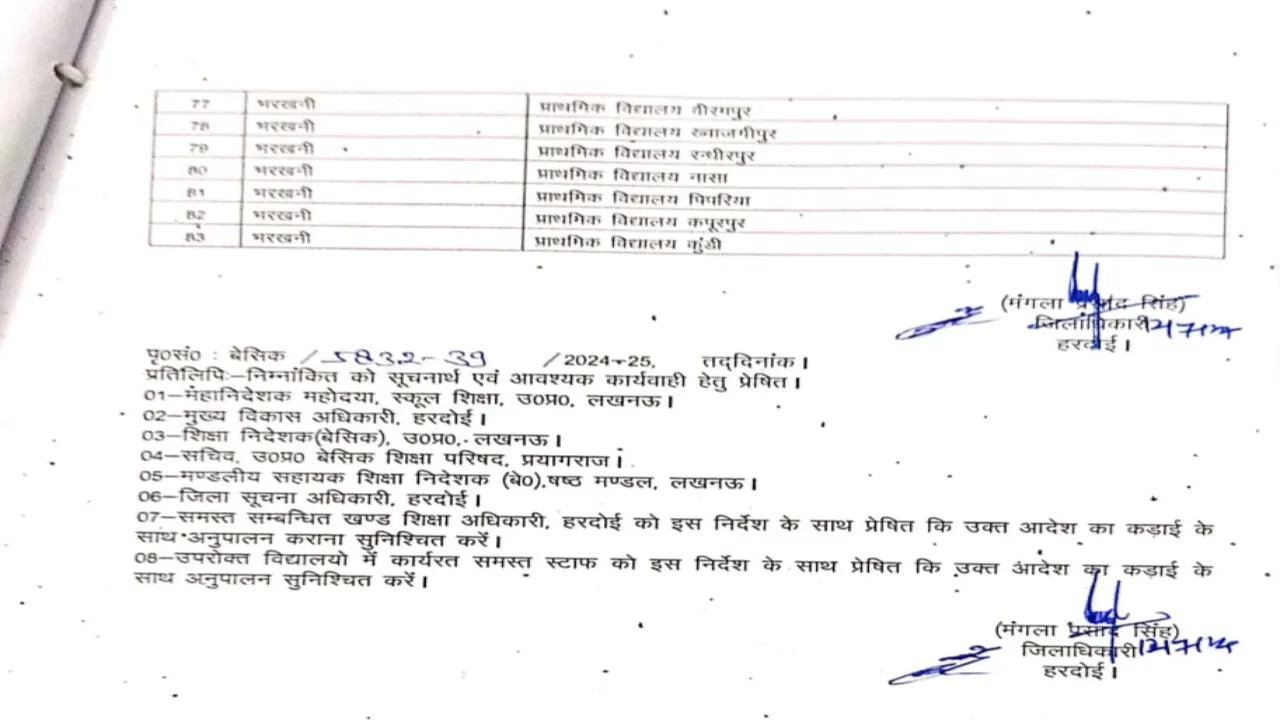 77 भरखनी प्राथमिक विद्यालय वीरमपुर
78 भरखनी प्राथमिक विद्यालय
79 भरखनी प्राथमिक विद्यालय रन्धीरपुर
80 भरखनी प्राथमिक विद्यालय नासा
81 भरखनी प्राथमिक विद्यालय पिपरिया
82 भरखनी प्राथमिक विद्यालय कपूरपुर
83 भरखनी प्राथमिक विद्यालय कुंडी
(मंगला प्रसाद सिंह)
जिलाधिकारी
हरदोई।
पृ०सं० : बेसिक / 5832-39 /2024-25, तद्दिनांक।
प्रतिलिपिः-निम्नांकित को सूचनार्थ एवं आवश्यक कार्यवाही हेतु प्रेषित।
01-महानिदेशक महोदया, स्कूल शिक्षा, उ०प्र०, लखनऊ।
02-मुख्य विकास अधिकारी, हरदोई।
03-शिक्षा निदेशक(बेसिक), उ०प्र०, लखनऊ।
04-सचिव, उ०प्र० बेसिक शिक्षा परिषद, प्रयागराज।
05-मण्डलीय सहायक शिक्षा निदेशक (बे०),षष्ठ मण्डल, लखनऊ।
06-जिला सूचना अधिकारी, हरदोई।
07-समस्त सम्बन्धित खण्ड शिक्षा अधिकारी, हरदोई को इस निर्देश के साथ प्रेषित कि उक्त आदेश का कड़ाई के
साथ अनुपालन कराना सुनिश्चित करें।
08-उपरोक्त विद्यालयो में कार्यरत समस्त स्टाफ को इस निर्देश के साथ प्रेषित कि उक्त आदेश का कड़ाई के
साथ अनुपालन सुनिश्चित करें।
(मंगला प्रसाद सिंह)
जिलाधिकारी
हरदोई।